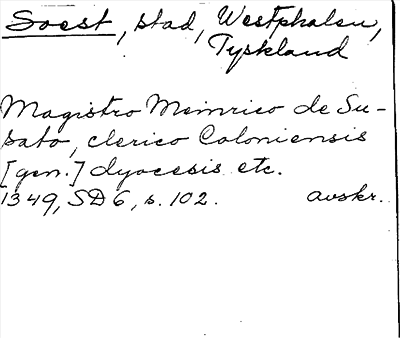 Soest, stad, Westphalen,
Tyskland
Magistro Meinrico de Su-
sato, clerico Coloniensis
[gen.] dyocesis etc.
1349, SD 6, s. 102. avskr.